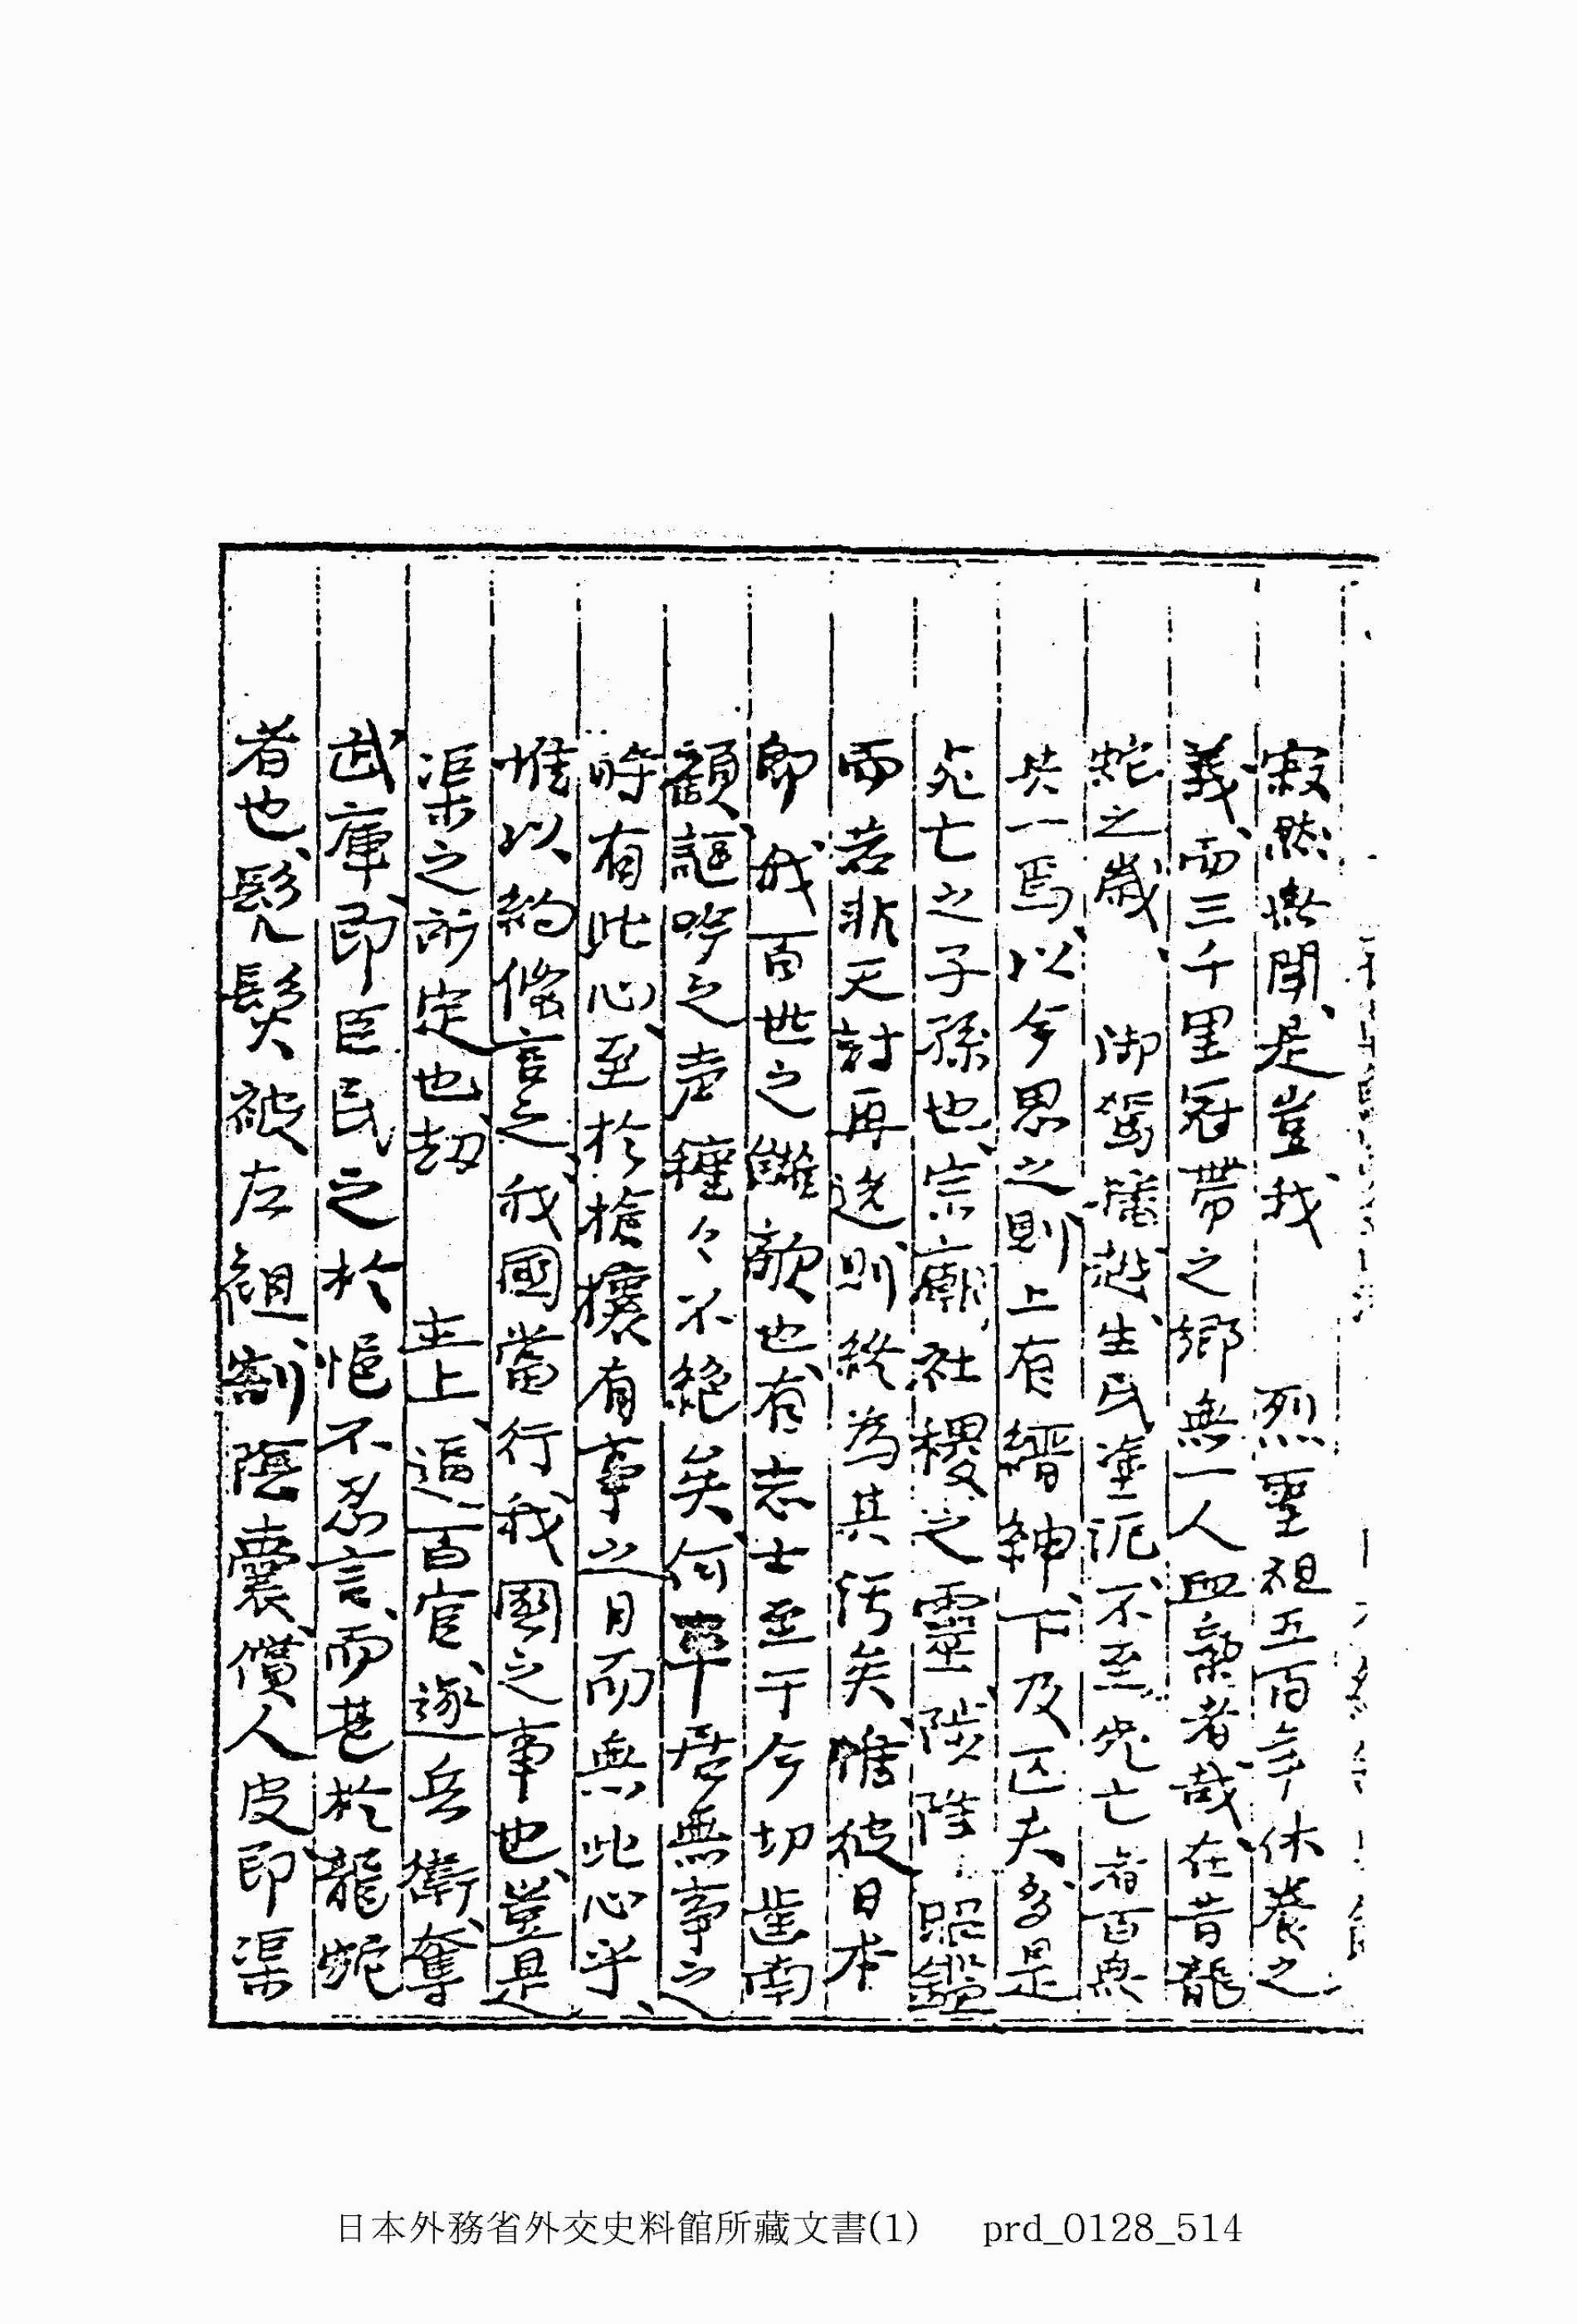 寂然無聞、是豈我　烈聖祖五百年休養之
義、而三千里冠帶之鄕無一人血氣者哉、在昔龍
蛇之歲、　御駕播越、生民塗炭、不至死亡者百無
其一焉、以今思之則上有縉紳、下及匹夫、多是
死亡之子孫也、宗廟社稷之靈陟降照鑑
而若非天討再造、則終為其後矣、惟彼日本
即我百世之讎敵也、有志士至于今切齒南
顧、謳吟之声種々不絶矣、何事居無事之
時有此心、至於搶攘有事之日而無此心乎、
惟以約條言之、我國當行我國之事也、豈是
渠之所定也、劫　主上、逼百官、逐兵衛、奪
武庫、即臣民之於悒不忍言、而甚於龍蛇
者也、髡髮被左袒、割陰囊、償人皮、即渠
日本外務省外交史料館所藏文書(1)　prd_0128_514